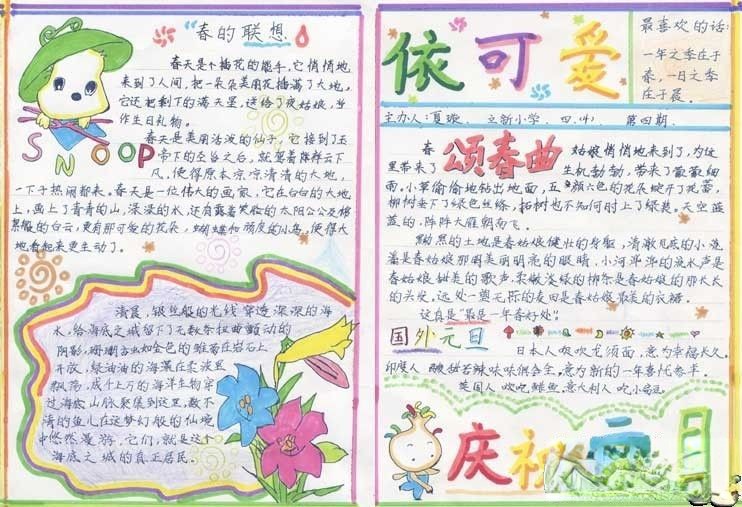 春的联想
春天是个播花的能手,它悄悄地
来到了人间,把一朵朵美丽花播满了大地。
它还把剩下的满天星,送给了夜姑娘,当
作生日礼物。
SNOOP
春天是美丽活泼的仙子,它接到玉
帝下的圣旨之后,就驾着祥云下
凡,使得原本凉凉清清的大地,
一下子热闹起来。春天是一位伟大的画家,它在白白的大地
上,画上了青青的山,深深的水,还有露着笑脸的太阳公公及
的白云,更有那可爱的花朵,蝴蝶和顽皮的小鸟,使得大
地看起来更生动了。
清晨,银丝般的光线穿透深深的海
水,给海底之城留下了无数条扭曲颤动的
阴影,珊瑚如金色的雏菊在岩石上
开放,绿油油的海藻在柔波里
飘荡,成千上万的海洋生物穿
过海底山脉聚集到这里,数不
清的鱼儿在这梦幻般的仙境
中悠然漫游,它们,就是这个
海底之城的真正居民。
依可爱
最喜欢的话:
一年之季在于
春,一日之季
在于晨。
主办人:夏璇、立新小学、四、 第四期、
颂春曲
春姑娘悄悄地来到了,为这
里带来了生机勃勃,带来了微微细
雨。小草偷偷地钻出地面,五颜六色的花朵绽开了花蕾,
柳树垂下了绿色丝绦,拓树也不知何时上了绿装。天空蓝
蓝的,阵阵大雁朝南飞。
黝黑的土地是春姑娘健壮的身躯,清澈见底的小流
是春姑娘那明美丽明亮的眼睛,小河哗哗的流水声是
春姑娘甜美的歌声,柔嫩浅绿的柳条是春姑娘的那长长
的头发,远处一望无际的麦田是春姑娘最美的衣裙。
这真是“最是一年春好处”!
国外元旦
日本人吸吹龙须面,意为幸福长久。
印度人 酸甜苦辣味味俱全,意为新的一年喜忧参半。
英国人 吹吃鲱鱼,意大利人吃小扁豆。
庆祝元旦